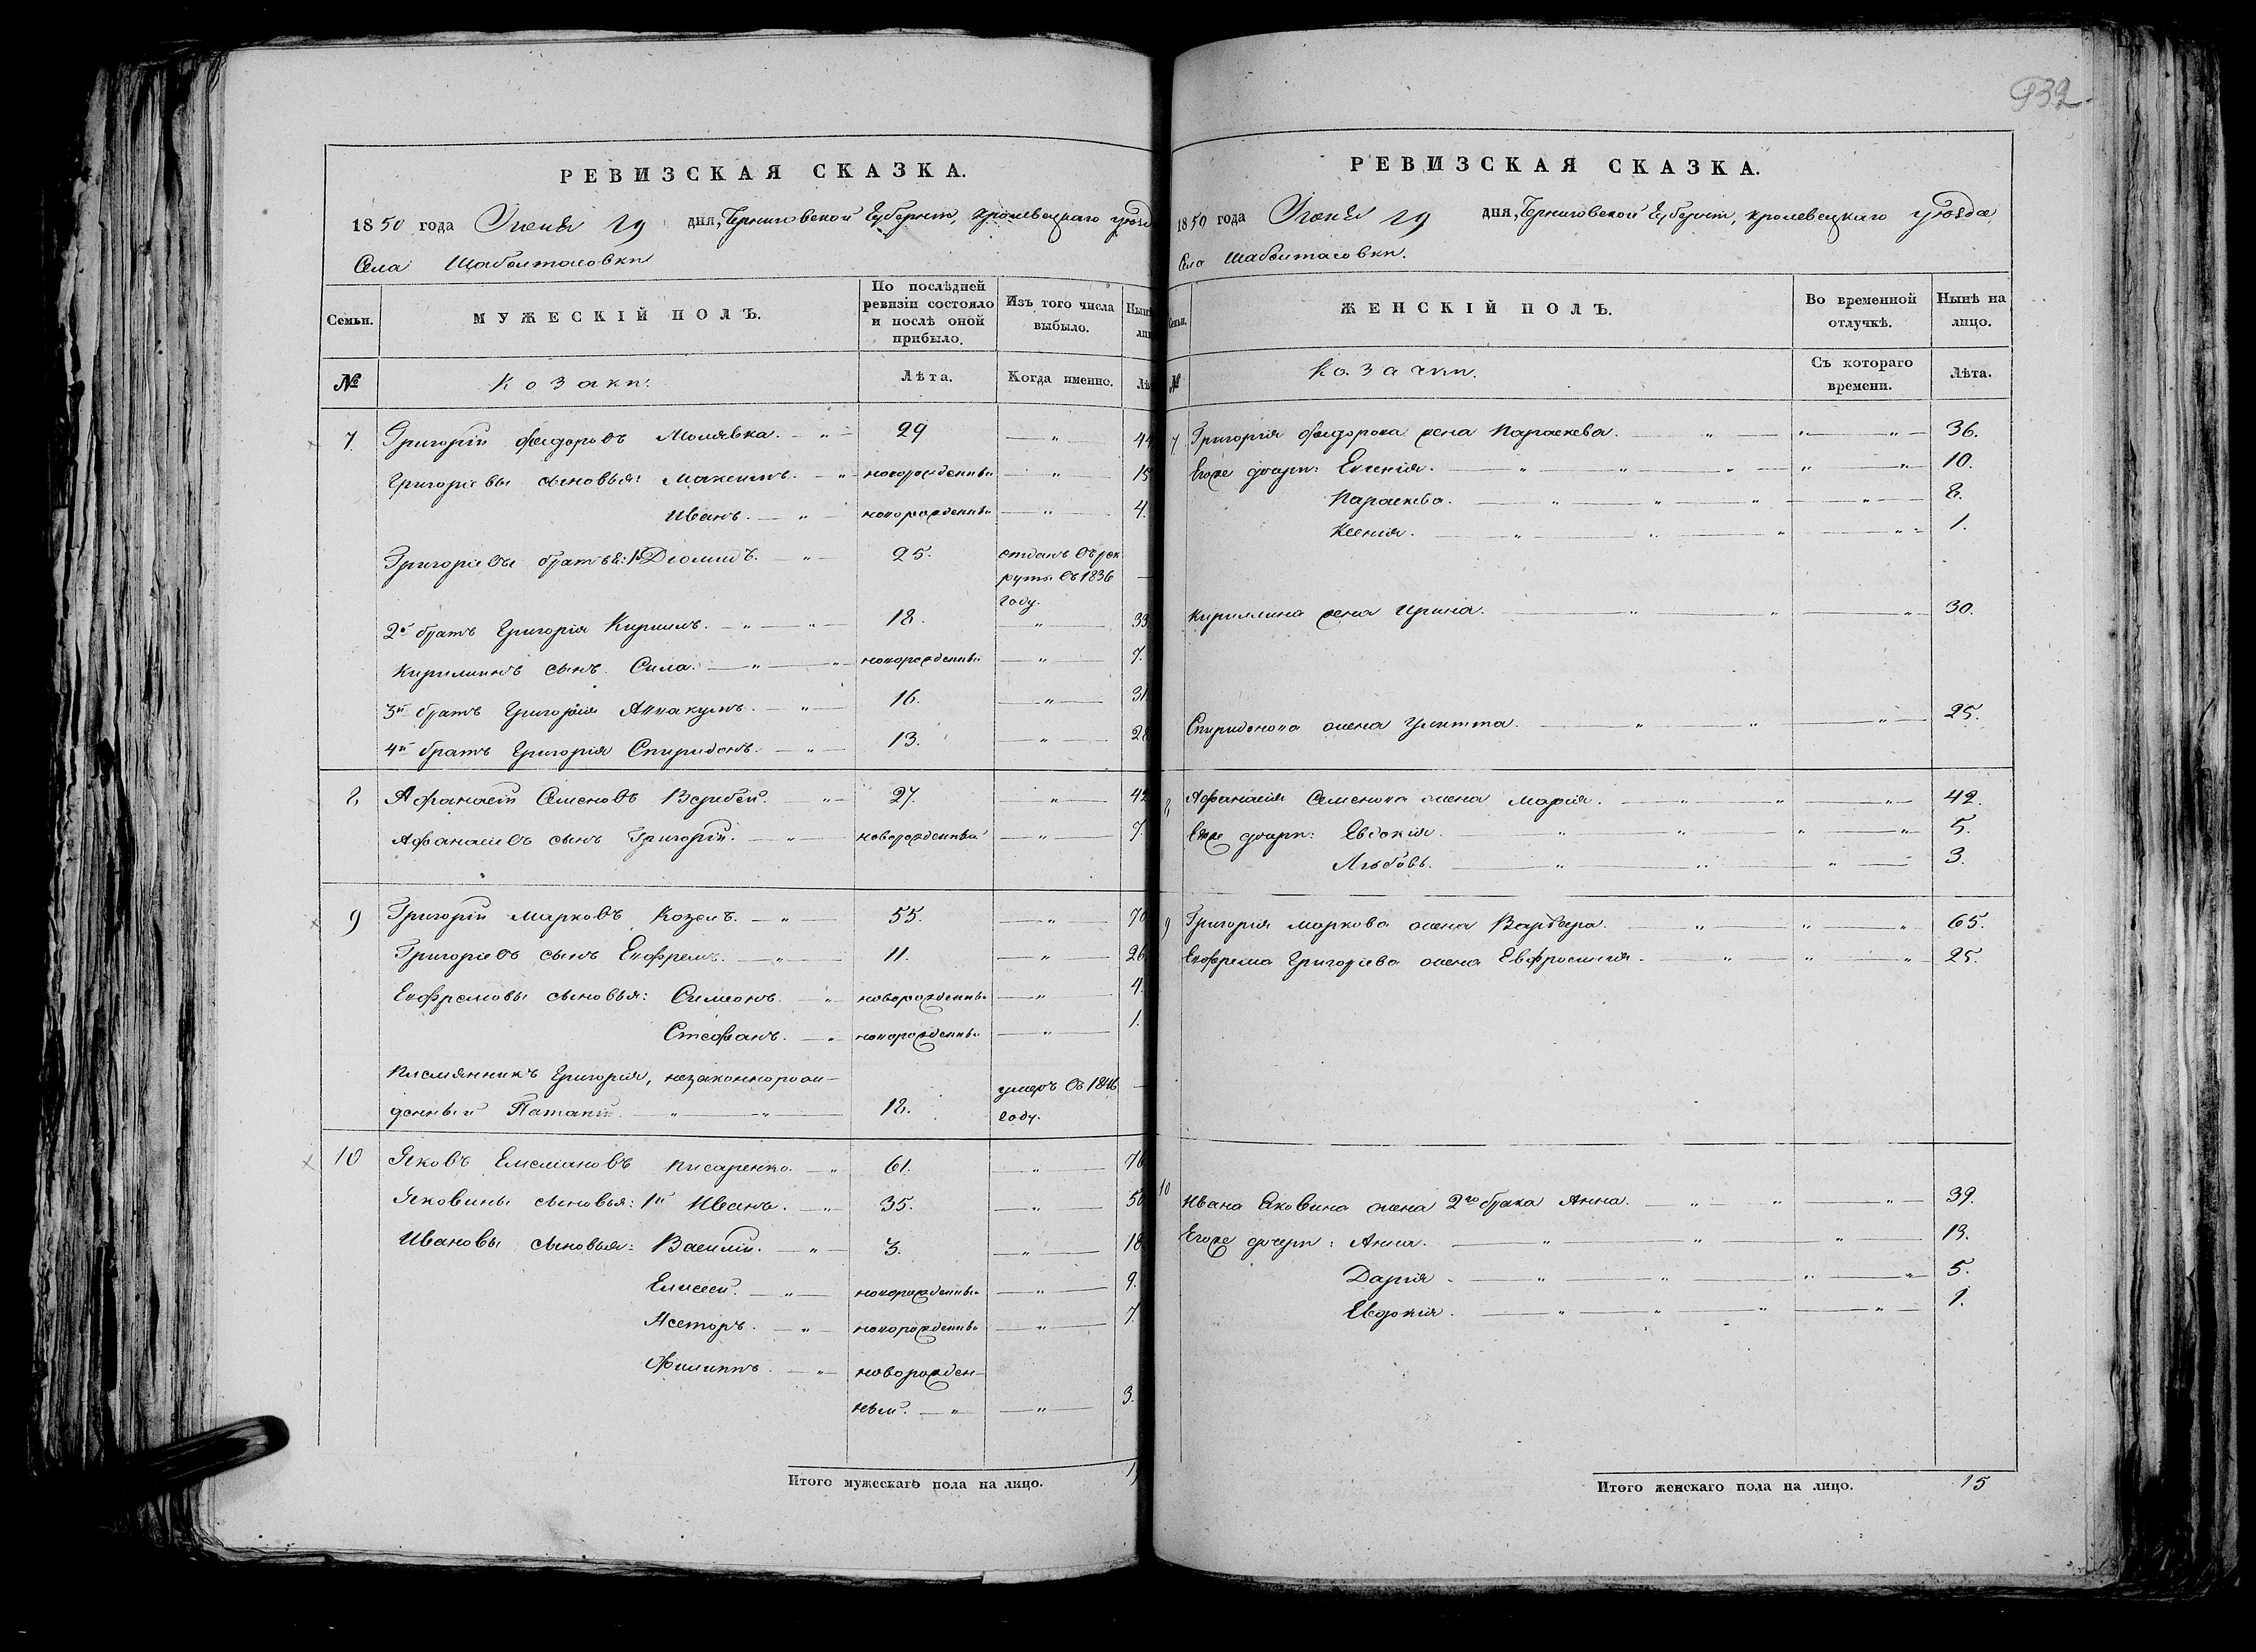 РЕВИЗСКАЯ СКАЗКА.
1850 года Июня 29 дня, Черниговской Губернии, Кролевецкаго уѣзда
Села Шабалтасовки
Семьи. МУЖЕСКІЙ ПОЛЪ. По послѣдней ревизіи состояло и послѣ оной прибыло. Изъ того числа выбыло.
№ Козаки. Лѣта. Когда именно.
7. Григорій Федоровъ Молявка. 29 44
Григорьевы сыновья: Максимъ. новорожденный 15
Иванъ. новорожденный 4.
Григорьевы братья: 1й Діомидъ. 25. отданъ въ рек
руты въ 1836
году.
2й братъ Григорія Кирилъ. 18. 33
Кирилинъ сынъ Сила. новорожденный 7.
3й братъ Григорія Аввакумъ. 16. 31
4й братъ Григорія Спиридонъ. 13. 28
8 Афанасій Семеновъ 27. 42
Афанасіевъ сынъ Григорій. новорожденный 7
9 Григорій Марковъ Козелъ. 55. 70
Григоріевъ сынъ Ефремъ. 11. 26
Ефремовы сыновья: Симеонъ. новорожденный 4.
Стефанъ. новорожденный 1.
Племянникъ Григорія, незаконнорож-
денный Патапій. 18. умеръ въ 1846
году.
10 Яковъ Емельяновъ Писаренко. 61. 76
Яковины сыновья: 1й Иванъ. 35. 50
Ивановы сыновья: Василій. 3. 18
Елисей. новорожденный 9.
Несторъ. новорожденный 7.
Филиппъ. новорожден-
ный. 3.
Итого мужескаго пола на лицо.
932.
РЕВИЗСКАЯ СКАЗКА.
1850 года Июня 29 дня, Черниговской Губерніи, Кролевецкаго уѣзда,
Села Шабалтасовки.
ЖЕНСКІЙ ПОЛЪ. Во временной отлучкѣ. Нынѣ на лицо.
№ Козачки. Съ котораго времени. Лѣта.
7. Григорія Федорова жена Параскева. 36.
Егоже дочери: Евгенія. 10.
Параскева. 8.
Ксенія. 1.
Кирилина жена Ирина. 30.
Спиридонова жена Улитта. 25.
8 Афанасія Семенова жена Марія. 42.
Егоже дочери: Евдокія. 5.
Любовь. 3.
9 Григорія Маркова жена Варвара. 65.
Ефрема Григорьева жена Евфросинія. 25.
10 Ивана Яковина жена 2го брака Анна. 39.
Егоже дочери: Анна. 13.
Дарія. 5.
Евдокія. 1.
Итого женскаго пола на лицо. 15